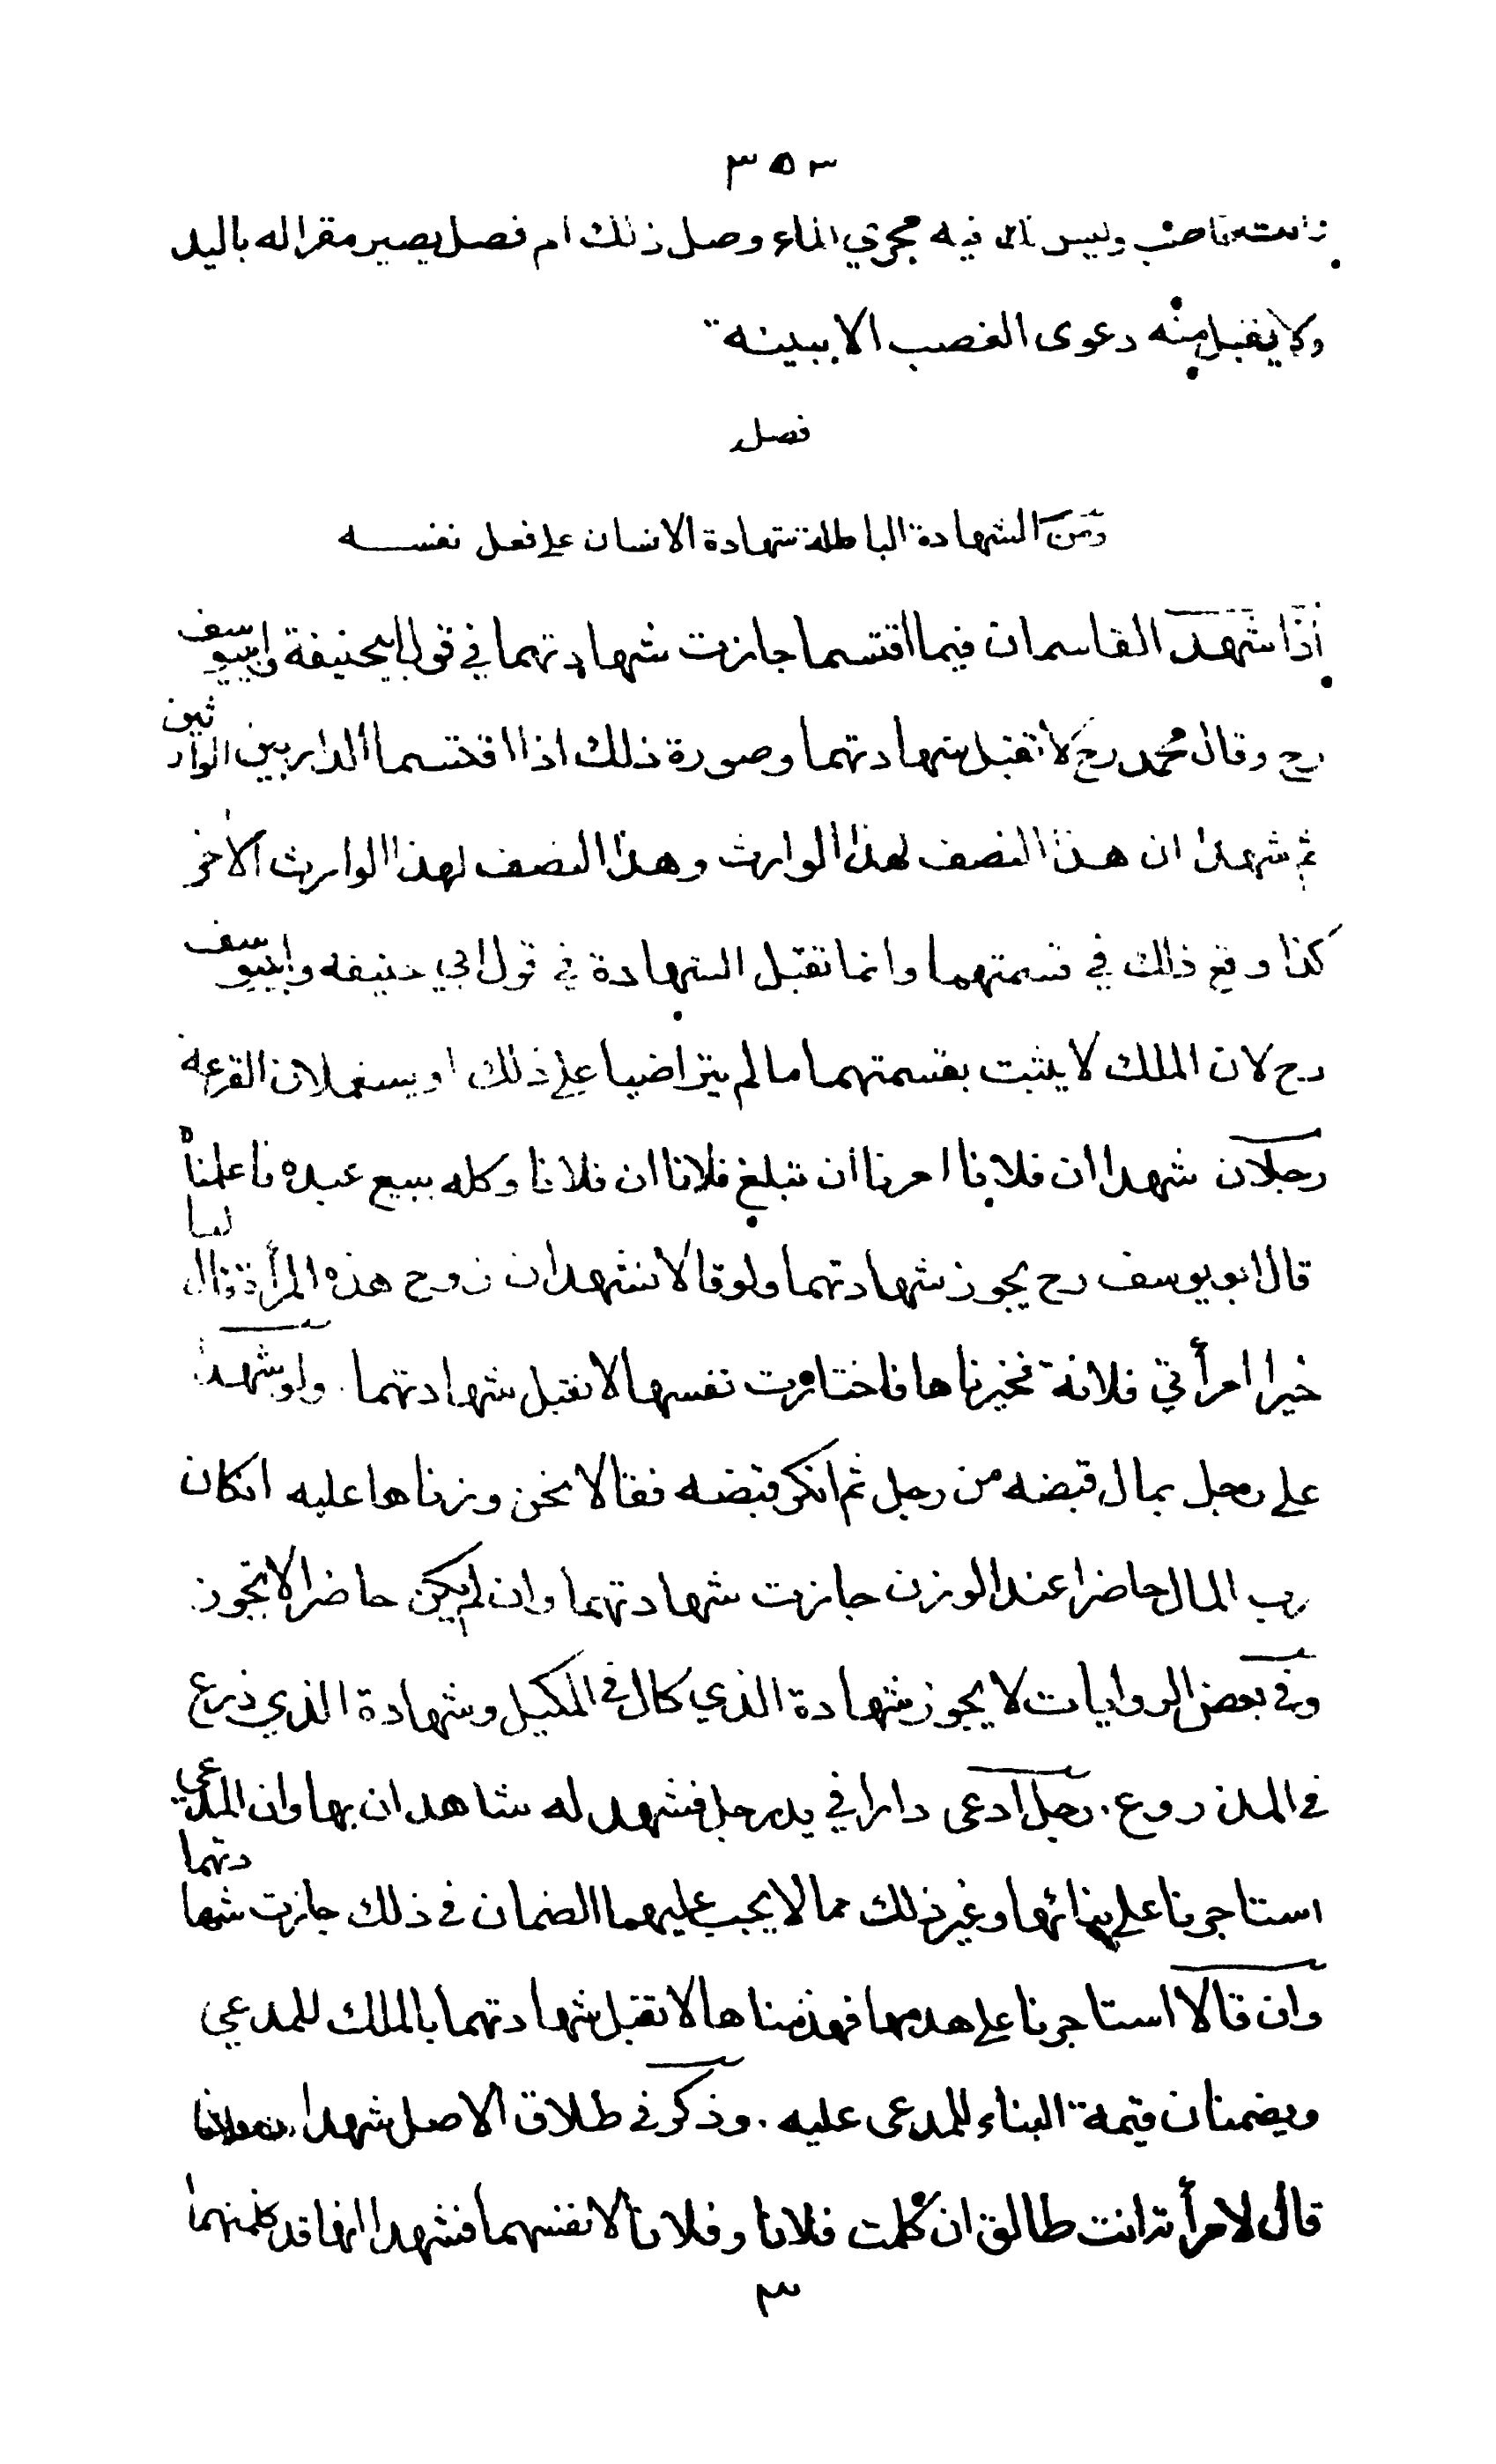 ٣٥٣
وليس فيه مجرى الماء وصل ذلك ام فصل يصير مقرا له باليد
ولا يقبل منه دعوى الغصب الا ببينة
فصل
ومن الشهادة الباطلة شهادة الانسان على فعل نفسه
اذا شهد القاسمان فيما اقتسما جازت شهادتهما في قول ابيحنيفة وابييوسف
رح وقال محمد رح لا تقبل شهادتهما وصورة ذلك اذا اقتسما الدار بين الوارثين
ثم شهدا ان هذا النصف لهذا الوارث وهذا النصف لهذا الوارث الاخر
كذا وقع ذلك في قسمتهما وانما تقبل الشهادة في قول ابي حنيفه وابييوسف
رح لان الملك لا يثبت بقسمتهما ما لم يتراضيا على ذلك او يستعملان القرعة
رجلان شهدا ان فلانا امرنا ان نبلغ فلانا ان فلانا وكله ببيع عبده فاعلمناه
قال ابو يوسف رح يجوز شهادتهما ولو قالا نشهد ان زوج هذه المرأة قال لنا
خيرا امرأتي فلانة فخيرناها فاختارت نفسها لا تقبل شهادتهما . ولو شهدا
على رجل بمال قبضه من رجل ثم انكر قبضه فقالا نحن وزناها عليه انكان
رب المال حاضرا عند الوزن جازت شهادتهما وان لم يكن حاضرا لا تجوز
وفي بعض الروايات لا يجوز شهادة الذي كال في المكيل وشهادة الذي ذرع
في المذروع . رجل ادعى دارا في يد رجل فشهد له شاهدان بها وان المدعي
استاجرنا على بنائها وغير ذلك مما لا يجب عليهما الضمان في ذلك جازت شهادتهما
وان قالا استاجرنا على هدمها فهدمناها لا تقبل شهادتهما بالملك للمدعي
ويضمنان قيمة البناء للمدعى عليه . وذكر في طلاق الاصل شهدا
قال لامرأته انت طالق ان كلمت فلانا وفلانا لانفسهما فشهدا انها قد كلمتهما
٣